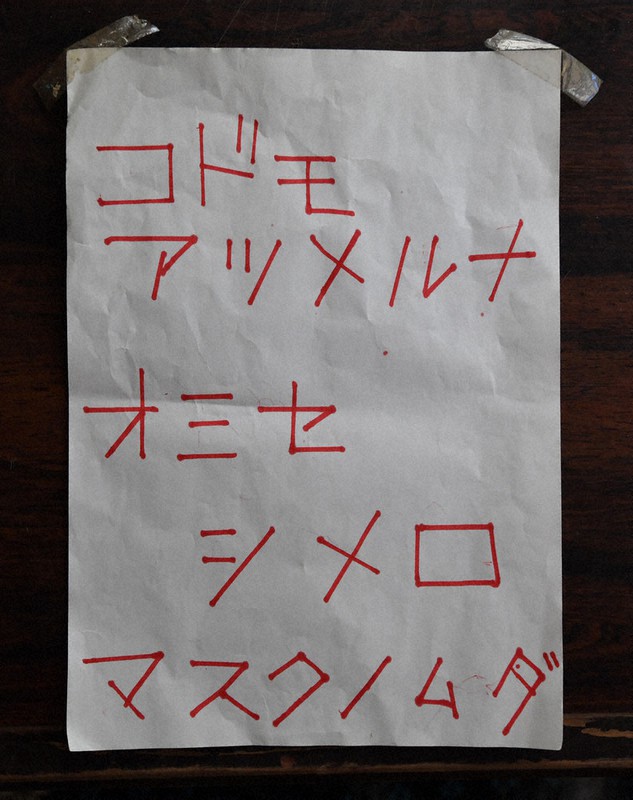 コドモ
アツメルナ
オミセ
シメロ
マスクノムダ